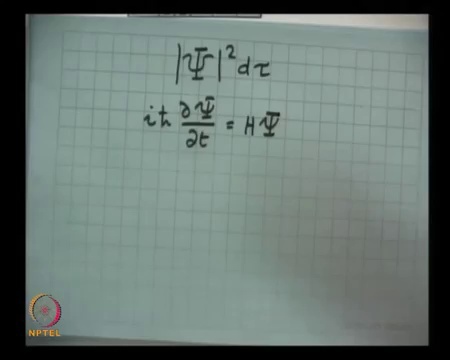 |Ψ|² dτ
iħ ∂Ψ/∂t = HΨ
NPTEL